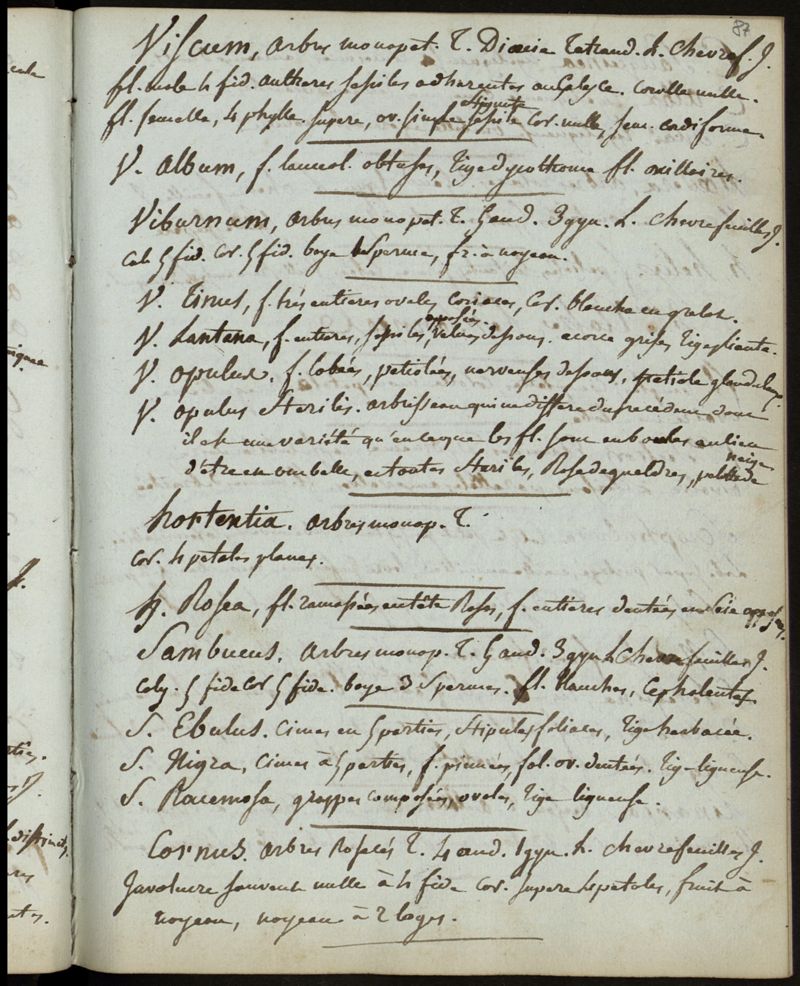 87
Viscum, arbres monopet. T. Dioecie Tetrand. L. Chevref. J.
fl. male 4 fid. antheres sessiles adherentes au Calyce. corolle nulle.
fl. femelle, 4 phylle supere, ov. simple stigmate sessile Cor. nulle, sem. cordiforme
V. Album, f. lanceol. obtuses, tige dycothome fl. axillaires.
Viburnum, arbres monopet. T. 5 and. 3 gyn. L. Chevrefeuilles J.
Cal. 5 fid. Cor. 5 fid. baye 1 Sperme, fr. à noyeau.
V. Tinus, f. trés entieres ovales coriaces, Cor. blanche en grelot.
V. Lantana, f. entieres, sessiles, opposées, velues dessous. ecorce grise, tige pliante.
V. Opulus. f. lobées, petiolées, nerveuses dessous, petiole glanduleux.
V. Opulus Sterilis. arbrisseau qui ne differe du precedent dont
il est une variété qu'en ce que les fl. sont en boules au lieu
d'être en ombelle, et toutes steriles, Rose de gueldres, pelotte de neige
hortentia. arbres monop. T.
cor. 4 petales planes.
h. Rosea, fl. ramassées en tête Roses, f. entieres dentées en Scie opposées.
Sambucus. arbres monop. T. 5 and. 3 gyn. L. Chevrefeuilles J.
Caly. 5 fide Cor 5 fide. baye 3 Spermes. fl. blanches, Cephalentes
S. Ebulus. Cimes en 5 parties, Stipules foliacées, tige herbacée.
S. Nigra, Cimes à 5 parties, f. pinnées, fol. ov. dentées. tige ligneuse.
S. Racemosa, grappes composées, ovales, tige ligneuse.
Cornus. arbres Rosacés T. 4 and. 1 gyn. L. Chevrefeuilles J.
Involucre souvent nulle à 4 fide Cor. supere 4 petales, fruit à
noyeau, noyeau à 2 loges.